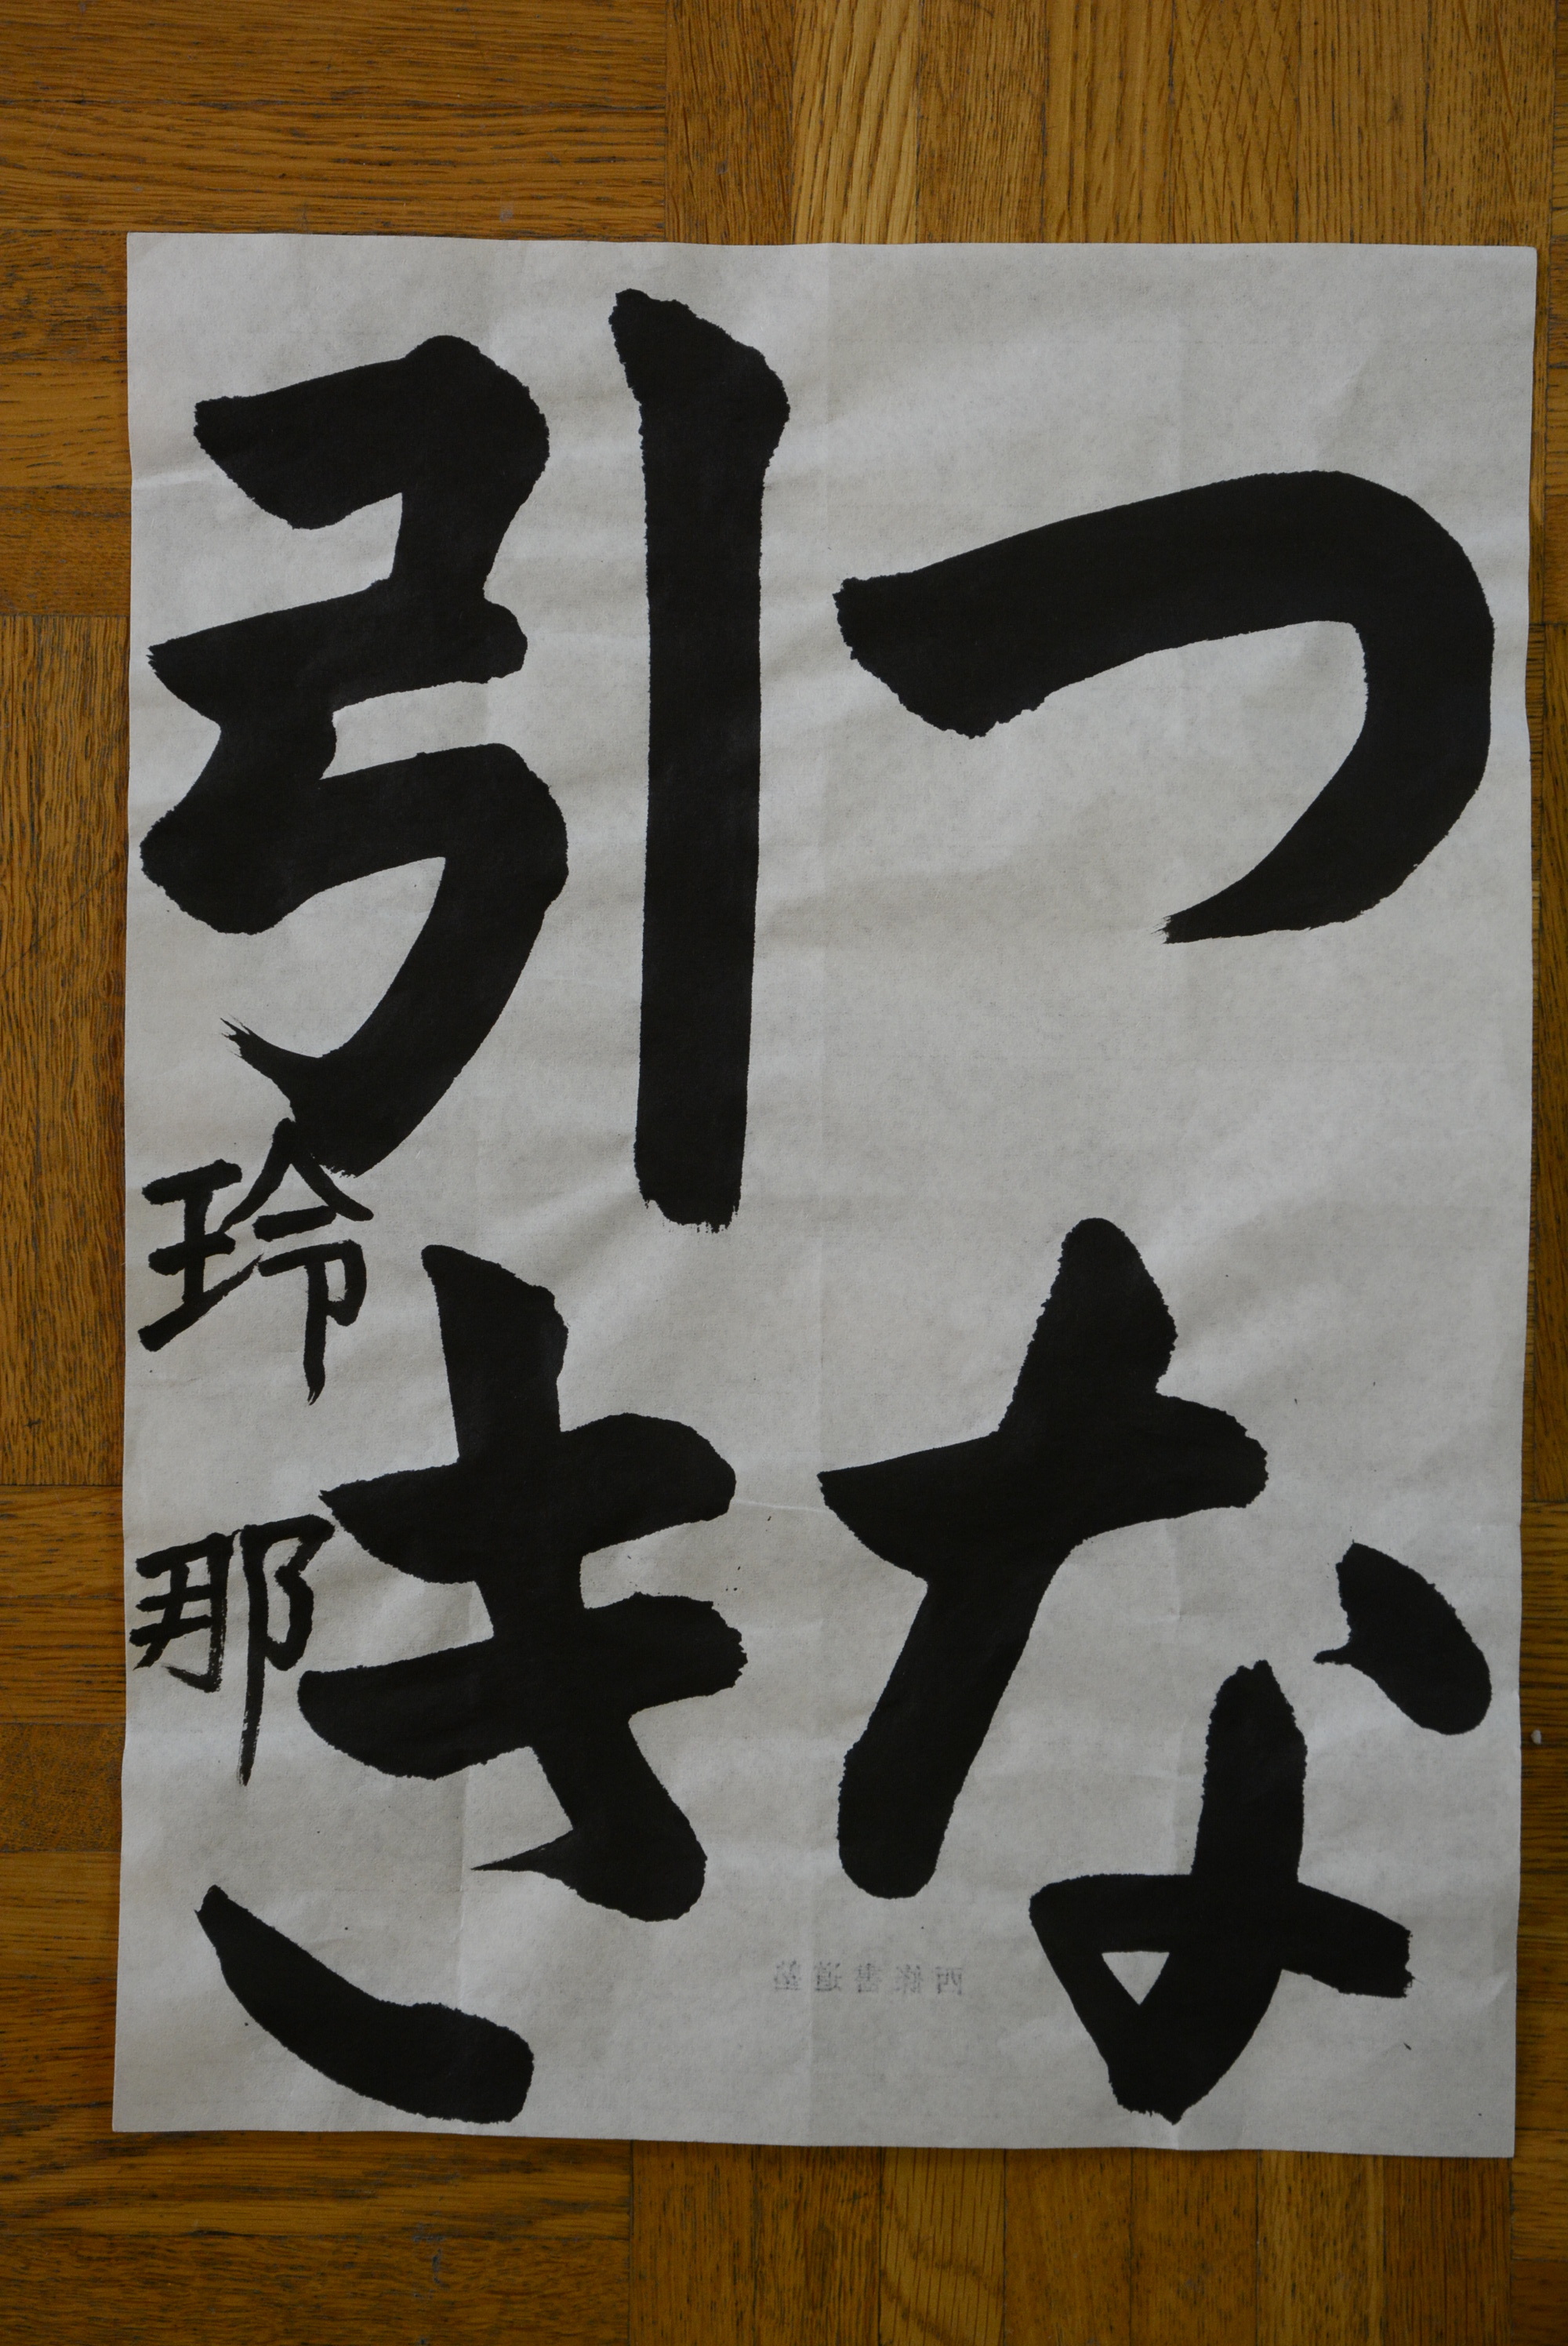 つな
引き
玲那
西條書道塾